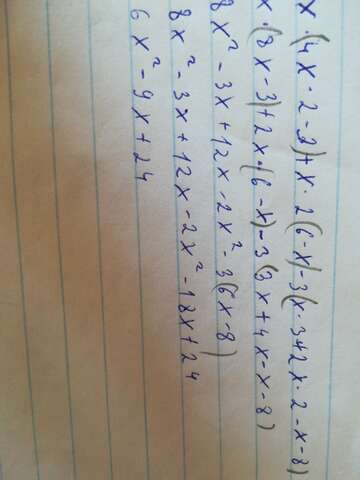 x·(4x·2-3)+x·2(6-x)-3(x·3+2x·2-x-8)
x·(8x-3)+2x·(6-x)-3(3x+4x-x-8)
8x²-3x+12x-2x²-3(6x-8)
8x²-3x+12x-2x²-18x+24
6x²-9x+24